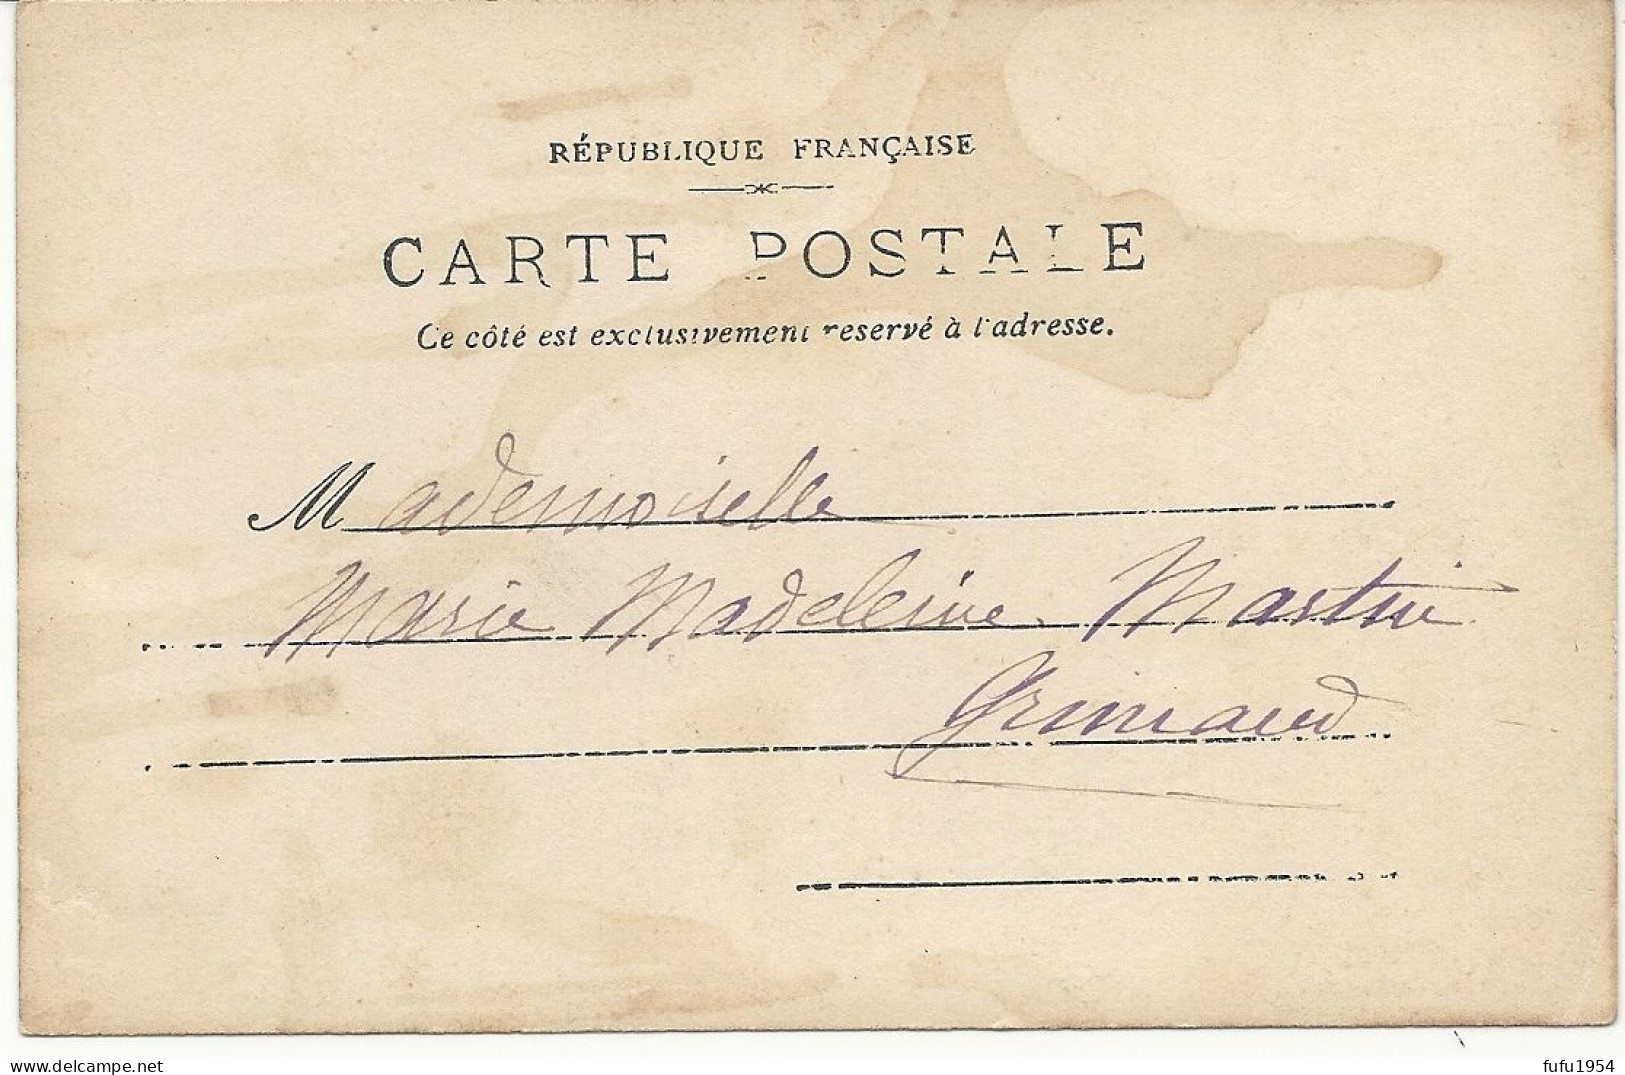 RÉPUBLIQUE FRANÇAISE
CARTE POSTALE
Ce côté est exclusivement reservé à l'adresse.
Mademoiselle
Marie Madeleine Martin
Grimaud
delcampe.net
fufu1954